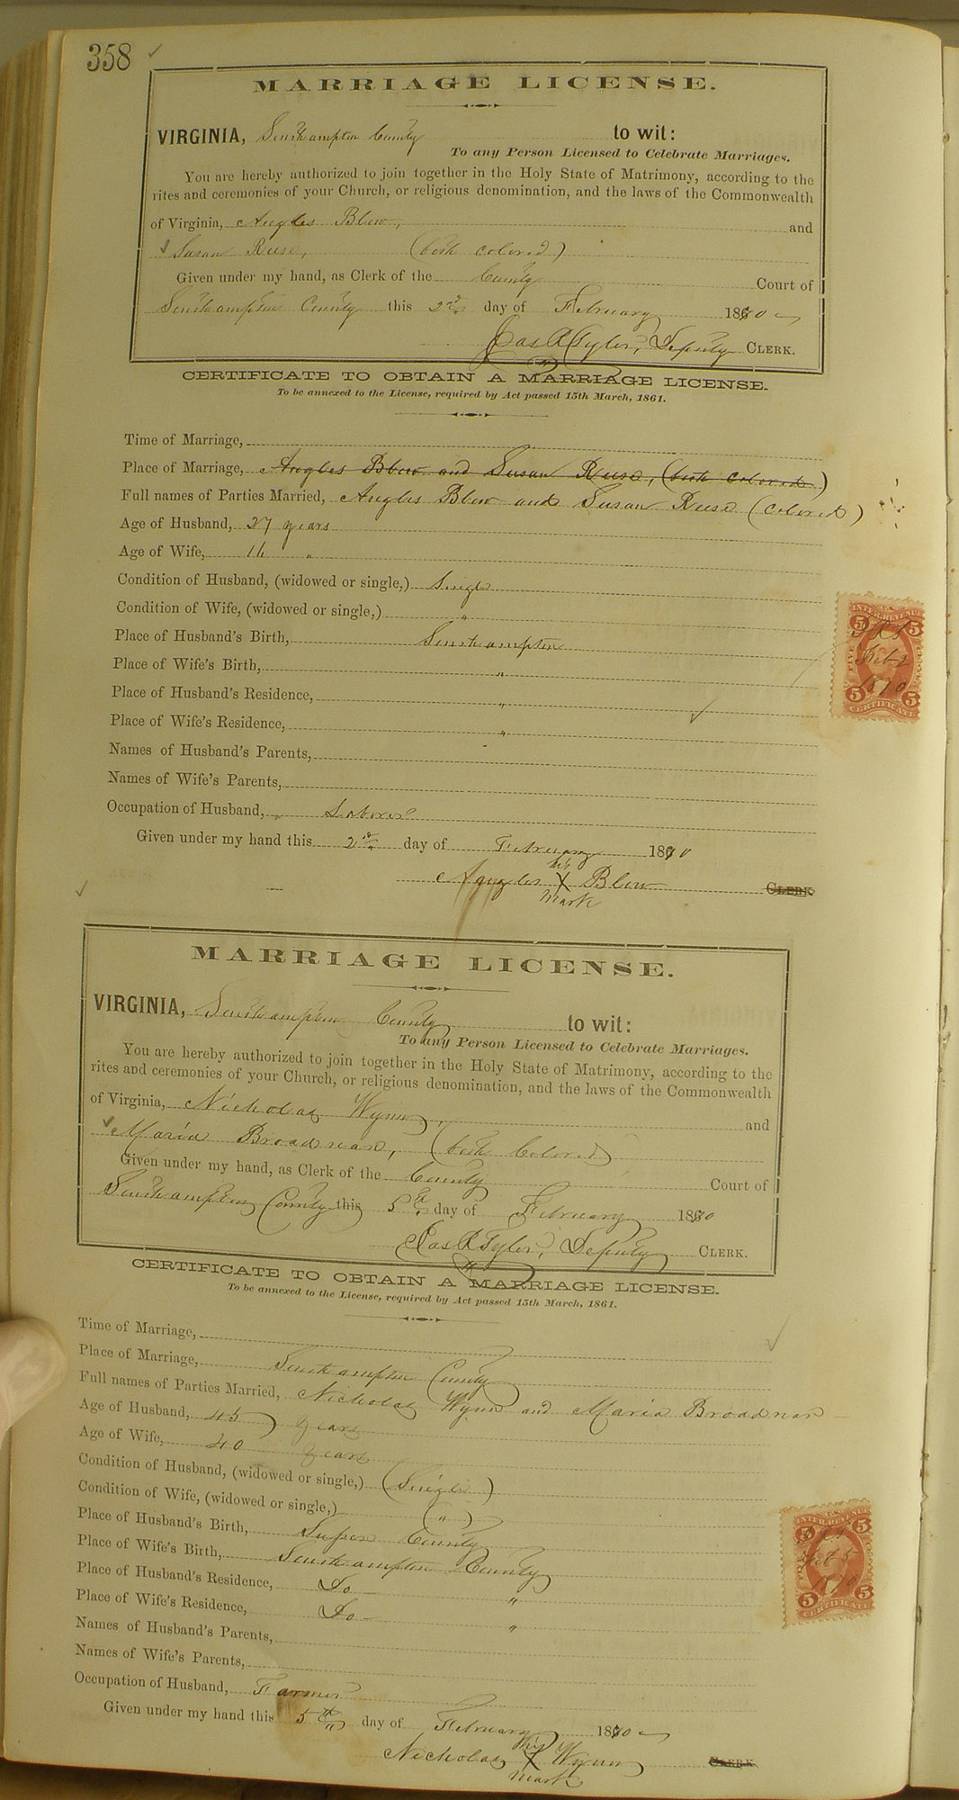 358
MARRIAGE LICENSE.
VIRGINIA, Southampton County to wit:
To any Person Licensed to Celebrate Marriages.
You are hereby authorized to join together in the Holy State of Matrimony, according to the
rites and ceremonies of your Church, or religious denomination, and the laws of the Commonwealth
of Virginia, Angles Blow, and
Susan Reese, (both colored)
Given under my hand, as Clerk of the County Court of
Southampton County this 2nd day of February 1870
Jas R Tyler, Deputy CLERK.
CERTIFICATE TO OBTAIN A MARRIAGE LICENSE.
To be annexed to the License, required by Act passed 15th March, 1861.
Time of Marriage,
Place of Marriage, Angles Blow and Susan Reese, (both colored)
Full names of Parties Married, Angles Blow and Susan Reese (colored)
Age of Husband, 27 years
Age of Wife, 16 "
Condition of Husband, (widowed or single,) Single
Condition of Wife, (widowed or single,) "
Place of Husband's Birth, Southampton
Place of Wife's Birth, "
Place of Husband's Residence, "
Place of Wife's Residence, "
Names of Husband's Parents,
Names of Wife's Parents,
Occupation of Husband, Laborer
Given under my hand this 2nd day of February 1870
his
Angles X Blow CLERK
mark
INTER. REVENUE
5 5
Feb 2
1870
5 5
CERTIFICATE
MARRIAGE LICENSE.
VIRGINIA, Southampton County to wit:
To any Person Licensed to Celebrate Marriages.
You are hereby authorized to join together in the Holy State of Matrimony, according to the
rites and ceremonies of your Church, or religious denomination, and the laws of the Commonwealth
of Virginia, Nicholas Wynn, and
Maria Broadnax, (both Colored)
Given under my hand, as Clerk of the County Court of
Southampton County this 5th day of February 1870
Jas R Tyler, Deputy CLERK.
CERTIFICATE TO OBTAIN A MARRIAGE LICENSE.
To be annexed to the License, required by Act passed 15th March, 1861.
Time of Marriage,
Place of Marriage, Southampton County
Full names of Parties Married, Nicholas Wynn and Maria Broadnax
Age of Husband, 45 years
Age of Wife, 40 years
Condition of Husband, (widowed or single,) (Single)
Condition of Wife, (widowed or single,) (")
Place of Husband's Birth, Sussex County
Place of Wife's Birth, Southampton County
Place of Husband's Residence, Do "
Place of Wife's Residence, Do "
Names of Husband's Parents,
Names of Wife's Parents,
Occupation of Husband, Farmer
Given under my hand this 5th day of February 1870
his
Nicholas X Wynn CLERK
mark
INTER. REVENUE
5 5
Feb 5
1870
5 5
CERTIFICATE